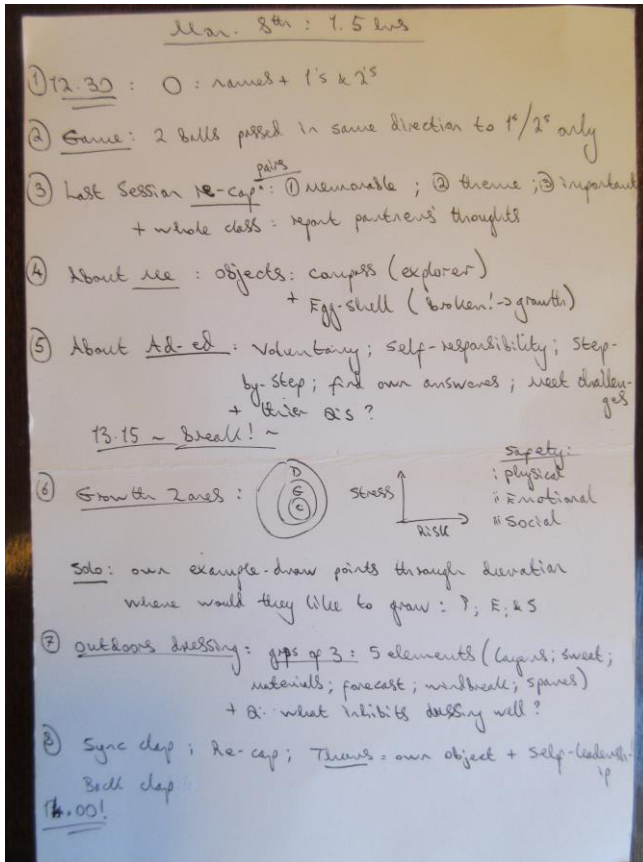 Mar. 8th : 1.5 hrs
① 12.30 : O : names + 1's & 2's
② Game : 2 balls passed in same direction to 1s/2s only
pairs
③ Last Session re-cap : ① memorable ; ② theme ; ③ important
+ whole class : report partners' thoughts
④ About me : objects : compass (explorer)
+ Egg-shell (broken! -> growth)
⑤ About Ad-ed : Voluntary ; self-responsibility ; step-
by-step ; find own answers ; meet challen-
ges
+ their Q's ?
13.15 ~ Break! ~
⑥ Growth Zones :
D
G
C
Stress
Risk
Safety :
i physical
ii Emotional
iii Social
Solo : own example - draw points through duration
where would they like to grow : P ; E ; & S
⑦ Outdoors dressing : grps of 3 : 5 elements (layers ; sweat ;
materials ; forecast ; windbreak ; spares)
+ Q : what inhibits dressing well ?
⑧ Sync clap ; Re-cap ; Thurs = own object + self-leadersh-
ip
Back clap
14.00!